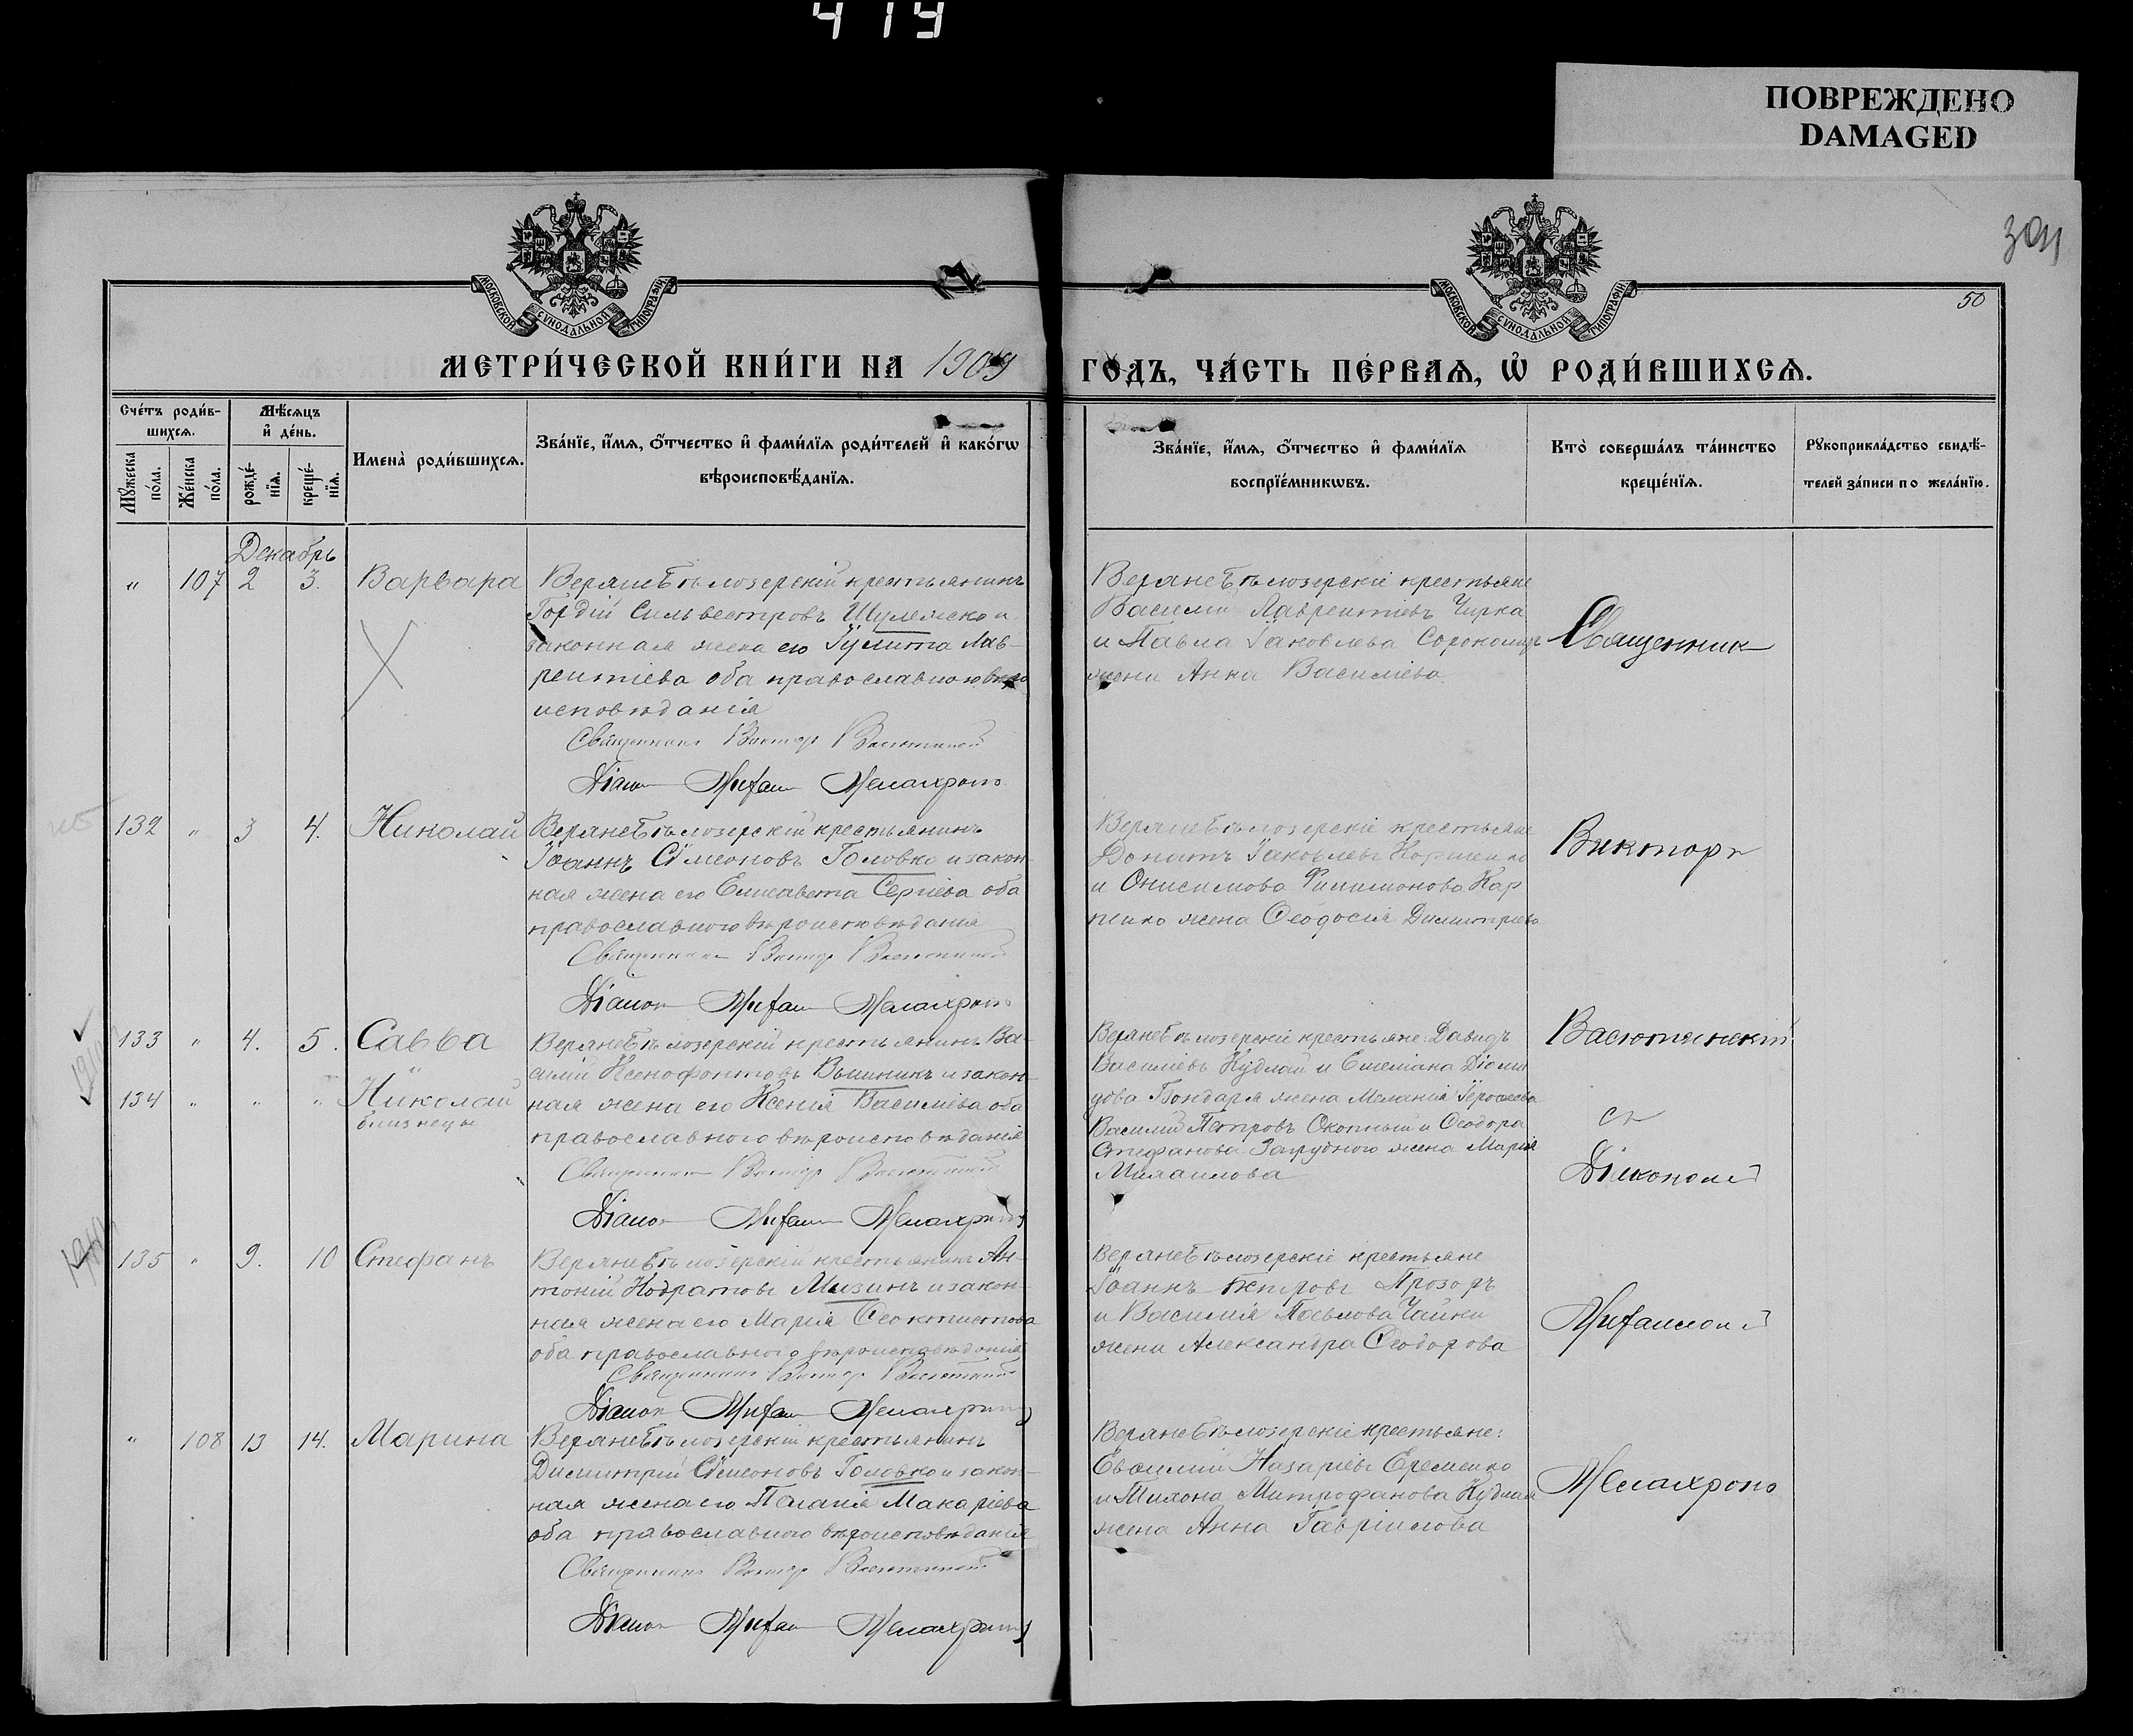 419
ПОВРЕЖДЕНО
DAMAGED
50
МОСКОВСКОЙ СѴНОДАЛЬНОЙ ТИПОГРАФІИ
МОСКОВСКОЙ СѴНОДАЛЬНОЙ ТИПОГРАФІИ
МЕТРИ́ЧЕСКОЙ КНИ́ГИ НА 1909 ГОДЪ, ЧА́СТЬ ПЕ́РВАѦ, Ѡ҆ РОДИ́ВШИХСѦ.
Сче́тъ роди́в-
шихсѧ.
Мѣ́сѧцъ
и҆ де́нь.
Мꙋ́жеска
по́ла.
Же́нска
по́ла.
рожде́-
нїѧ.
креще́-
нїѧ.
Имена̀ роди́вшихсѧ.
Зва́нїе, и҆́мѧ, ѻ҆́тчество и҆ фами́лїѧ роди́телей и҆ како́гѡ
вѣроисповѣ́данїѧ.
Зва́нїе, и҆́мѧ, ѻ҆́тчество и҆ фами́лїѧ
воспрїе́мникѡвъ.
Кто̀ соверша́лъ та́инство
креще́нїѧ.
Рꙋкоприкла́дство свидѣ́-
телей за́писи по жела́нїю.
Декабрь
" 107 2 3. Варвара
Верхнебѣлозерскій крестьянинъ
Гордій Сильвестровъ и
законная жена его Іулитта Лав-
рентіева оба православнаго вѣро
исповѣданія
Священникъ Викторъ Васютинскій
Діаконъ Митрофанъ
Верхнебѣлозерскіе крестьяне
Василій Лаврентіевъ Чирка
и Павла Іаковлева
жена Анна Василіева
Священникъ
132 " 3 4. Николай
Верхнебѣлозерскій крестьянинъ
Іоаннъ Сѵмеоновъ Головко и закон-
ная жена его Елисавета Сергіева оба
православнаго вѣроисповѣданія
Священникъ Викторъ Васютинскій
Діаконъ
Верхнебѣлозерскіе крестьяне
Донатъ Іаковлевъ
и Онисимова Филимонова Кар
пенко жена Ѳеодосія Димитріева
Викторъ
133 " 4. 5. Савва
134 " " " Николай
близнецы
Верхнебѣлозерскій крестьянинъ Ва-
силій Ксенофонтовъ и закон-
ная жена его Ксенія Василіева оба
православнаго вѣроисповѣданія
Священникъ Викторъ Васютинскій
Діаконъ
Верхнебѣлозерскіе крестьяне: Давидъ
Василіевъ Кудлай и Емеліана Діоми
дова Бондаря жена Меланія
Василій Петровъ Окопный и Ѳеодора
Стефанова Запуднаго жена Марія
Михаилова
Васютинскій
съ
Діакономъ
135 " 9. 10 Стефанъ
Верхнебѣлозерскій крестьянинъ Ан-
тоній Кодратовъ Мизинъ и закон-
ная жена его Марія Ѳеоктистова
оба православнаго вѣроисповѣданія
Священникъ Викторъ Васютинскій
Діаконъ
Верхнебѣлозерскіе крестьяне
Іоаннъ Петровъ Прозоръ
и Василія Павлова Чайки
жена Александра Ѳеодорова
" 108 13 14. Марина
Верхнебѣлозерскій крестьянинъ
Димитрій Сѵмеоновъ Головко и закон-
ная жена его Пелагія Макаріева
оба православнаго вѣроисповѣданія
Священникъ Викторъ Васютинскій
Діаконъ
Верхнебѣлозерскіе крестьяне:
Евѳимій Назаріевъ Еременко
и Тихона Митрофанова Кудлая
жена Анна Гавріилова